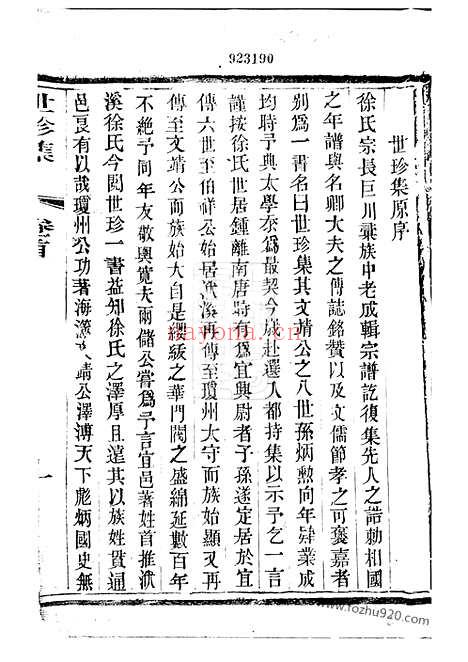 923190
世珍集原序
徐氏宗長巨川彙族中老成輯宗譜訖復集先人之誥勅相國
之年譜與名卿大夫之傳誌銘贊以及文儒節孝之可褒嘉者
別為一書名曰世珍集其文靖公之八世孫炳勲向年肄業成
均時予典太學忝為最契今歲赴選入都持集以示予乞一言
謹按徐氏世居鍾離南唐時有為宜興尉者子孫遂定居於宜
傳六世至伯祥公始居洑溪再傳至瓊州太守而族始顯又再
傳至文靖公而族始大自是纓紱之華門閥之盛綿延數百年
不絶予同年友敬輿寬夫兩儲公嘗為予言宜邑著姓首推洑
溪徐氏今閱世珍一書益知徐氏之澤厚且遠其以族姓貫通
邑良有以哉瓊州公功著海濱文靖公澤溥天下彪炳國史無
世珍集
卷首
一
www.fozhu920.com
nayona.cn